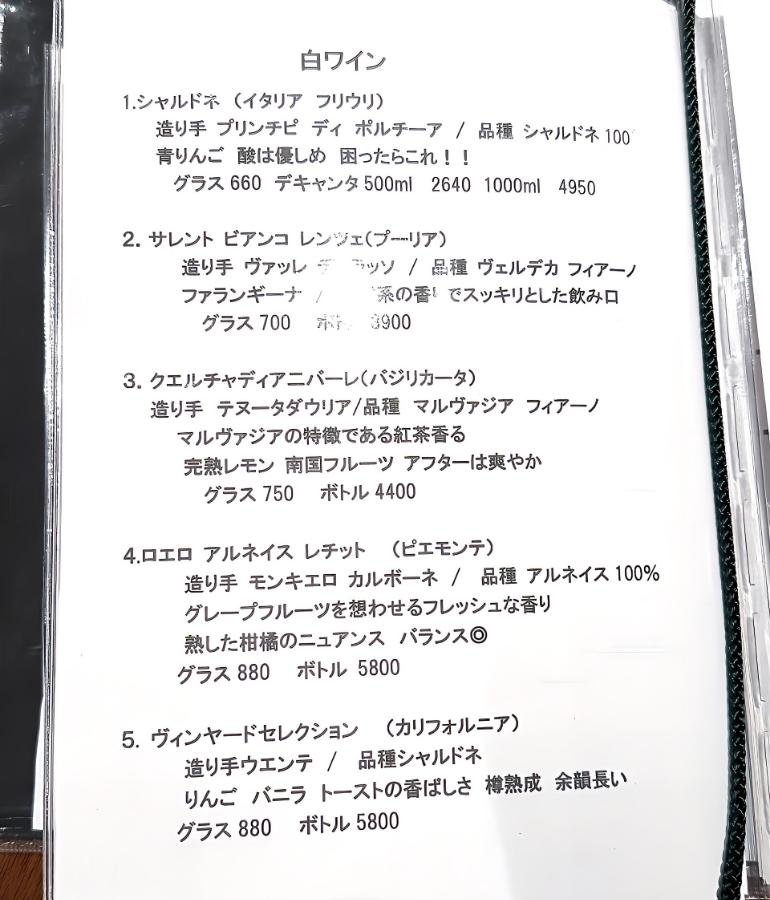 白ワイン
1.シャルドネ （イタリア フリウリ）
造り手 プリンチピ ディ ポルチーア / 品種 シャルドネ 100
青りんご 酸は優しめ 困ったらこれ！！
グラス 660 デキャンタ 500ml 2640 1000ml 4950
2. サレント ビアンコ レンツェ(プーリア)
造り手 ヴァッレ ッソ / 品種 ヴェルデカ フィアーノ
ファランギーナ / 系の香りでスッキリとした飲み口
グラス 700 900
3. クエルチャディアニバーレ(バジリカータ)
造り手 テヌータダウリア/品種 マルヴァジア フィアーノ
マルヴァジアの特徴である紅茶香る
完熟レモン 南国フルーツ アフターは爽やか
グラス 750 ボトル 4400
4.ロエロ アルネイス レチット （ピエモンテ）
造り手 モンキエロ カルボーネ / 品種 アルネイス 100%
グレープフルーツを想わせるフレッシュな香り
熟した柑橘のニュアンス バランス◎
グラス 880 ボトル 5800
5. ヴィンヤードセレクション （カリフォルニア）
造り手ウエンテ / 品種シャルドネ
りんご バニラ トーストの香ばしさ 樽熟成 余韻長い
グラス 880 ボトル 5800